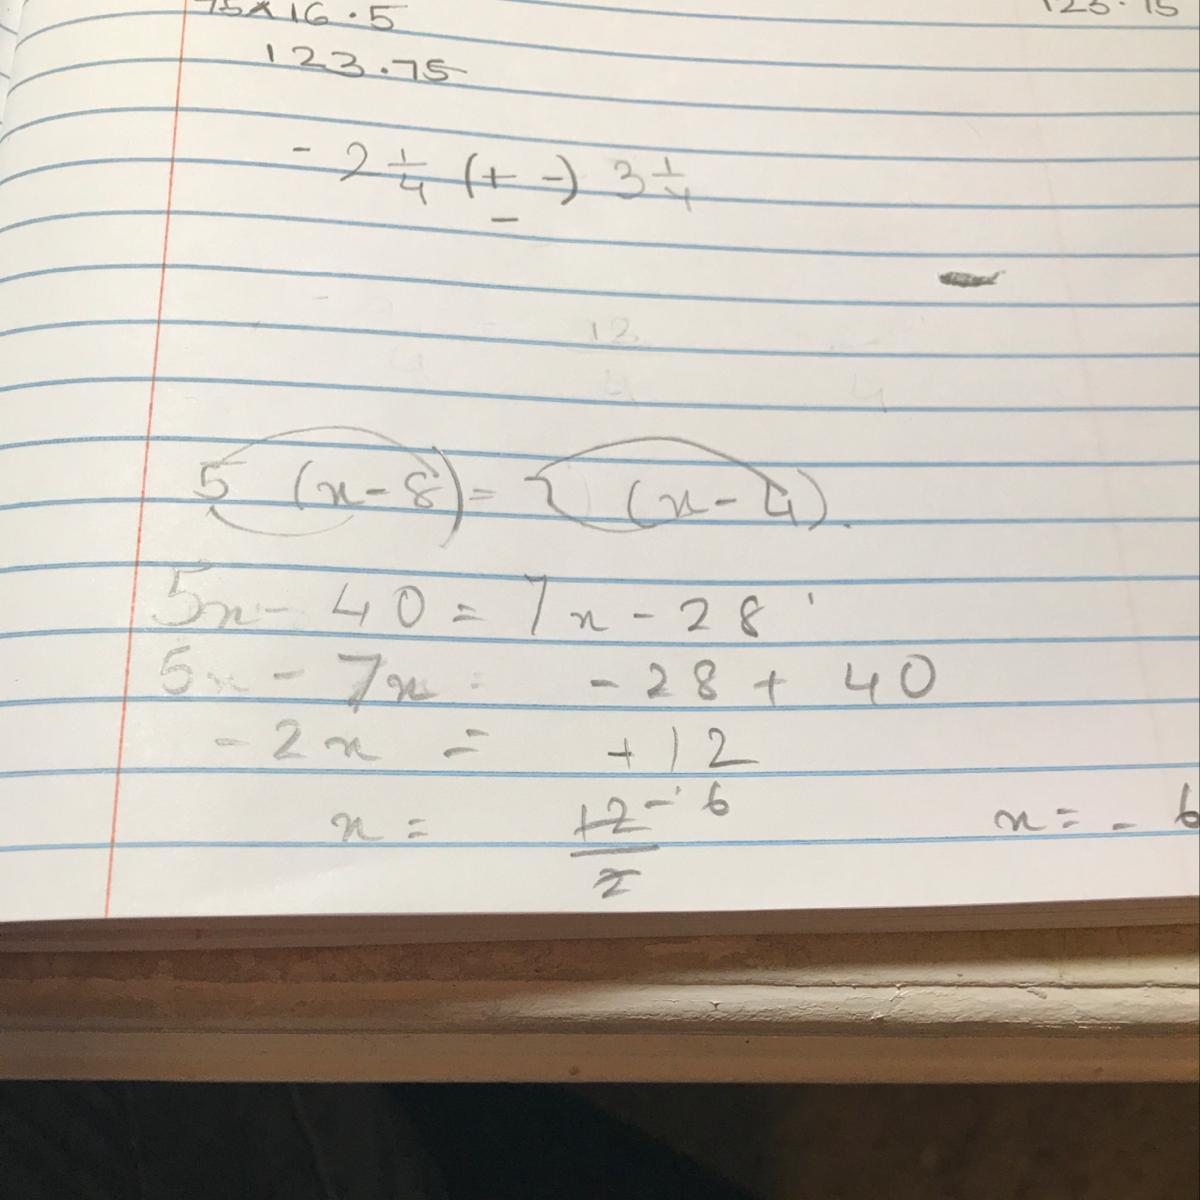 75 × 16.5
123.75
123.75
- 2 1/4 (+ -) 3 1/4
-
12
4 4 4
5 (x - 8) = 7 (x - 4).
5x - 40 = 7x - 28
5x - 7x = - 28 + 40
- 2x = + 12
x = 12/2 - 6 x = - 6